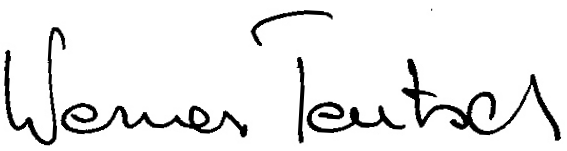 Werner Teutsch